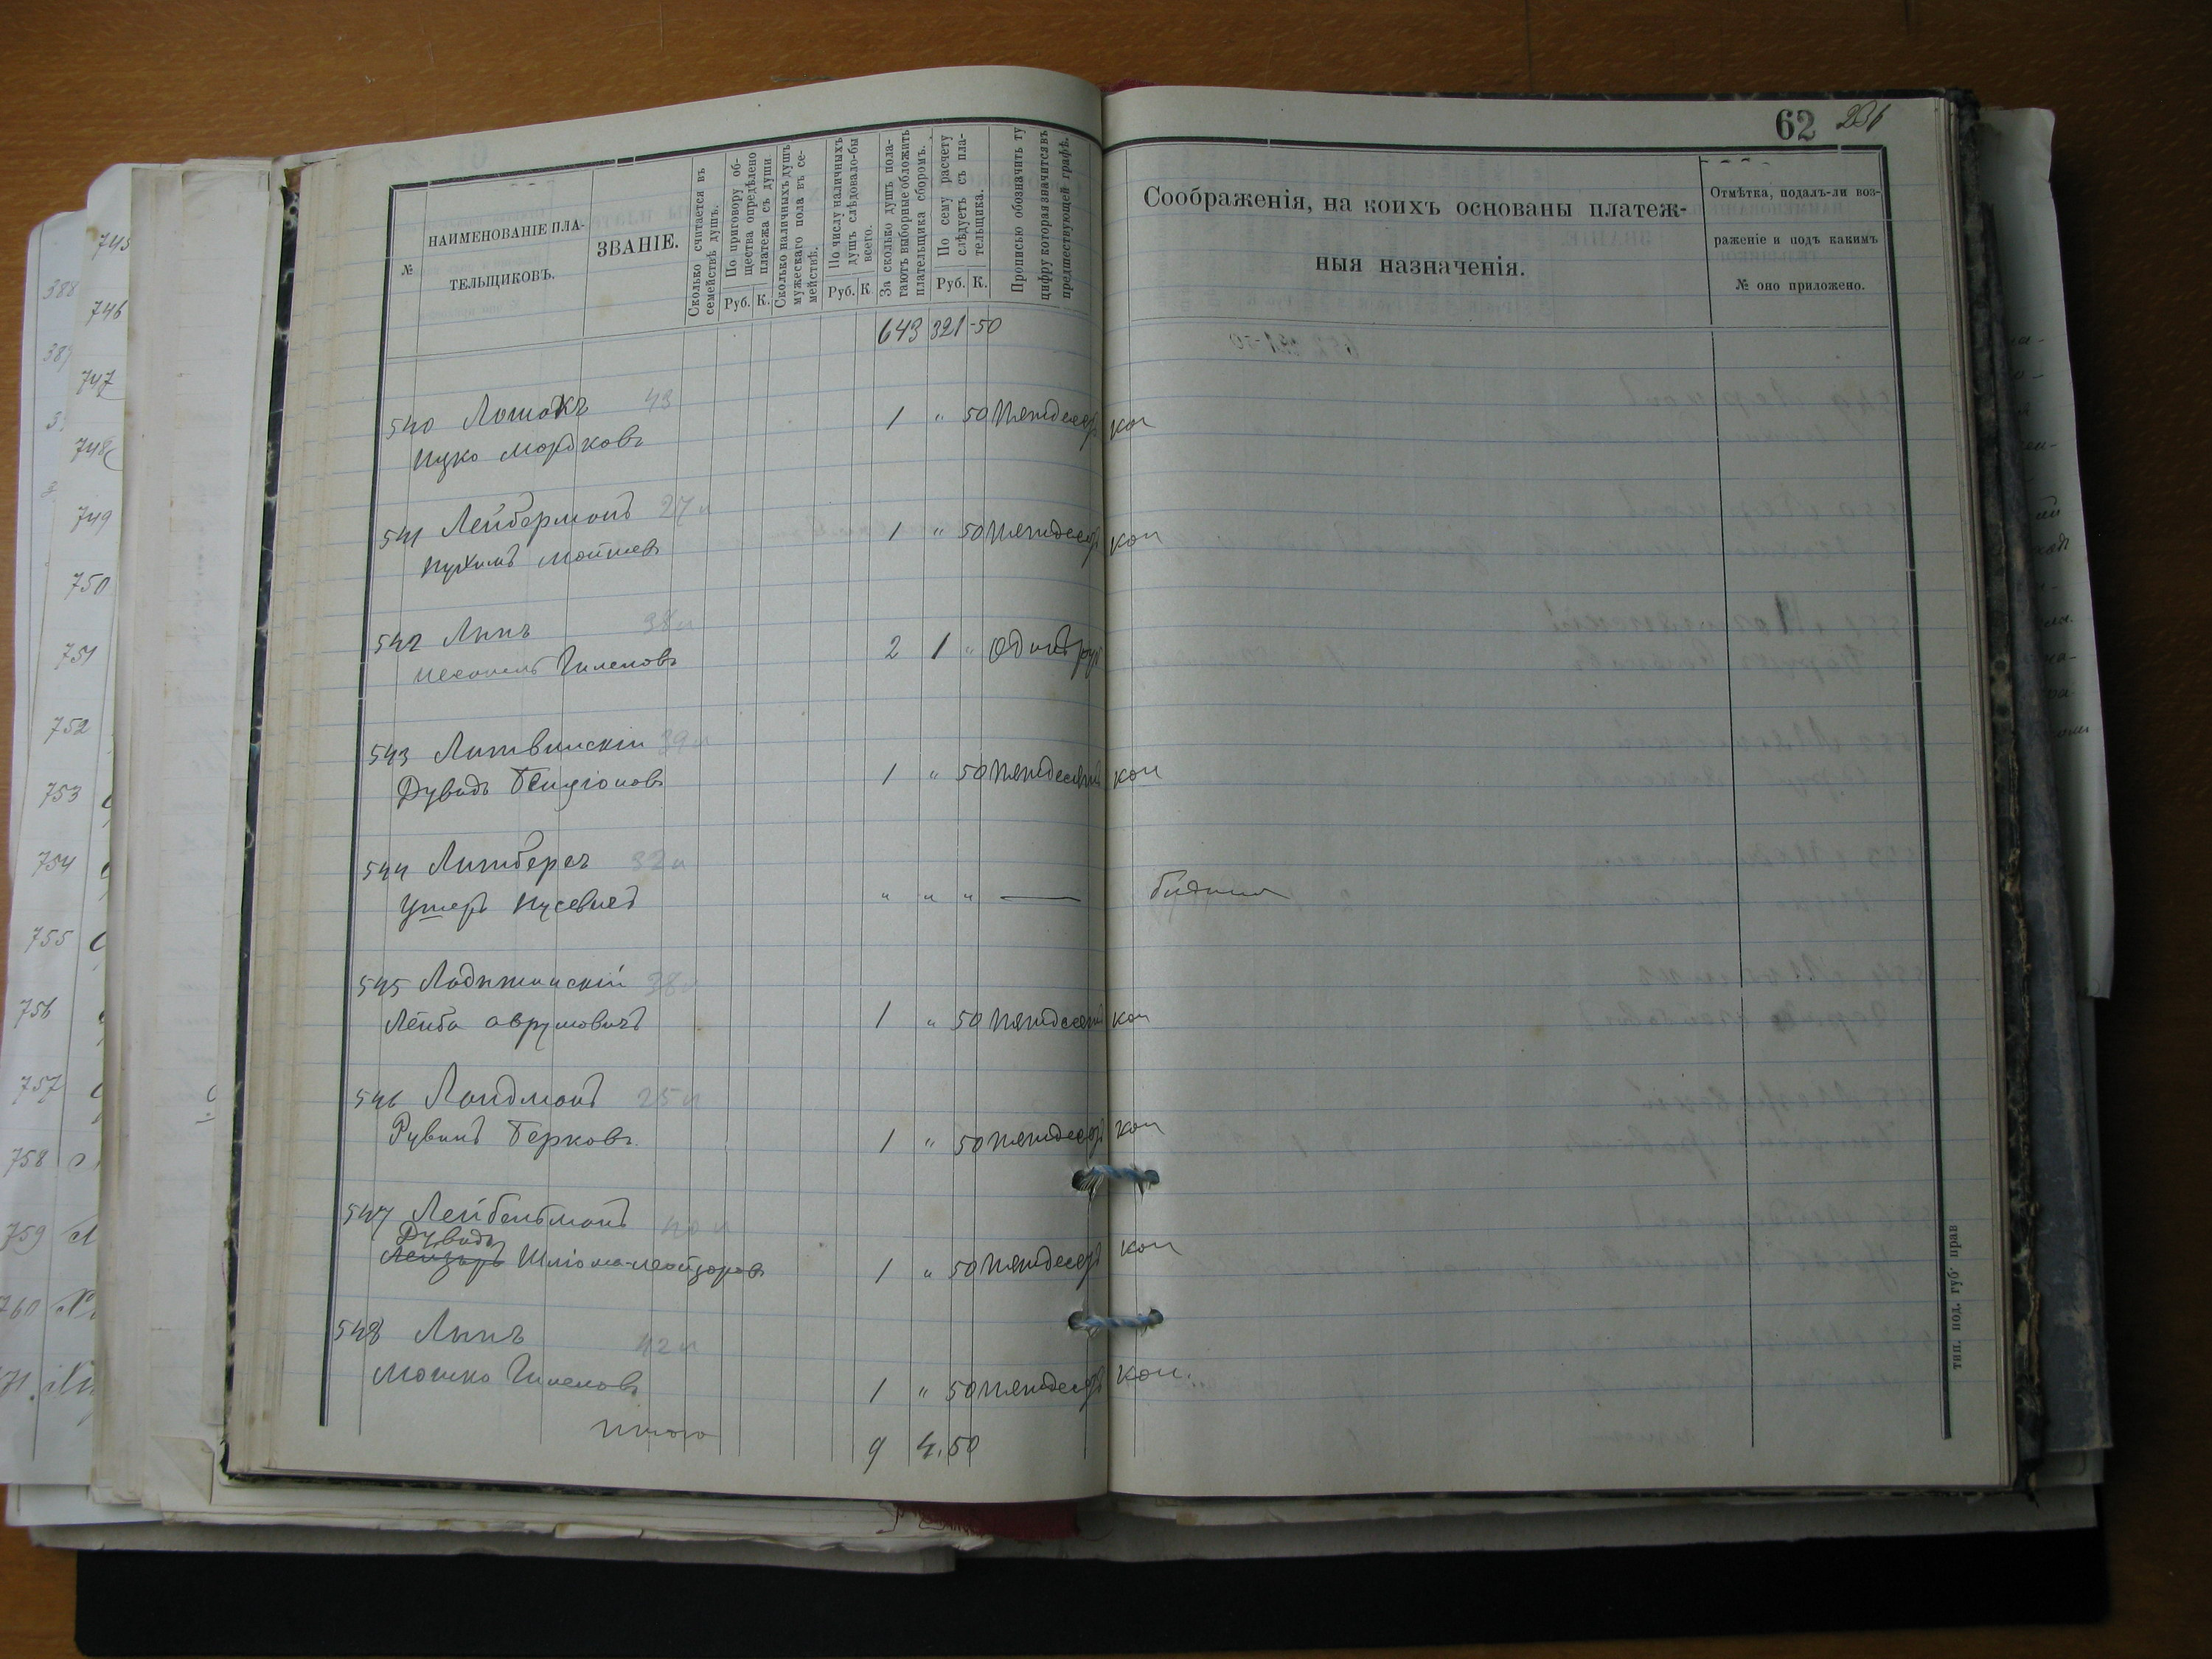 62 236
№
НАИМЕНОВАНІЕ ПЛА-
ТЕЛЬЩИКОВЪ.
ЗВАНІЕ.
Сколько считается въ
семействѣ душъ.
По приговору об-
щества опредѣлено
платежа съ души.
Руб. К.
Сколько наличныхъ душъ
мужескаго пола въ се-
мействѣ.
По числу наличныхъ
душъ слѣдовало-бы
всего.
Руб. К.
За сколько душъ пола-
гаютъ выборные обложить
плательщика сборомъ.
По сему расчету
слѣдуетъ съ пла-
тельщика.
Руб. К.
Прописью обозначить ту
цифру которая значится въ
предшествующей графѣ.
Соображенія, на коихъ основаны платеж-
ныя назначенія.
Отмѣтка, подалъ-ли воз-
раженіе и подъ какимъ
№ оно приложено.
643 321-50
540 Лошакъ 43
Ицко Мордковъ 1 " 50 Пятдесят коп
541 Лейберманъ 27 л
Нухимъ Мошкевъ 1 " 50 Пятдесят коп
542 Липъ 38 л
Гилеловъ 2 1 " Один руб
543 Литвинскiй 39 л
Дувидъ Бенціоновъ 1 " 50 Пятдесят коп
544 Литбергъ 32 л
Ушеръ Нусевичъ " " " — бидный
545 Ладыжинскій 38 л
Лейба Аврумовичъ 1 " 50 Пятдесят коп
546 Ландманъ 25 л
Рувинъ Берковъ. 1 " 50 Пятдесят коп
547 Лейбельманъ 40 л
Дувидъ
Лейзеръ Шліома-Лейзеровъ 1 " 50 Пятдесят коп
548 Липъ 42 л
Мошко Гилеловъ 1 " 50 Пятдесят коп.
Итого 9 4.50
тип. под. губ. прав
745
746
747
748
749
750
751
752
753
754
755
756
757
758
759
760
388